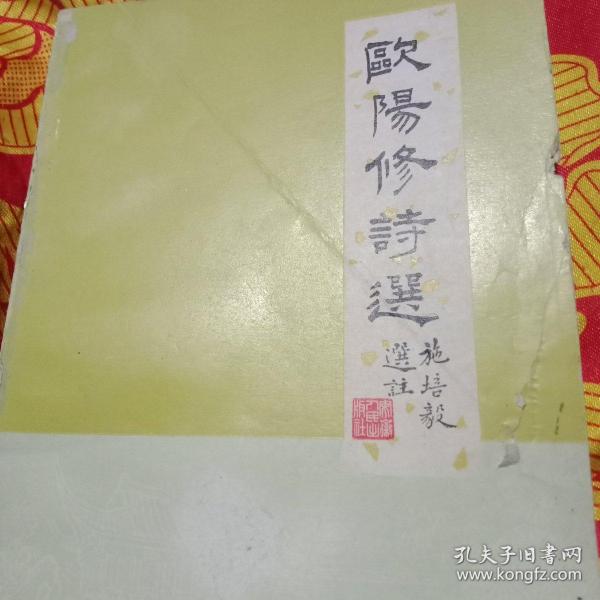 歐陽修詩選
施培毅
選註
安徽
人民出
版社
孔夫子旧书网
www.kongfz.com